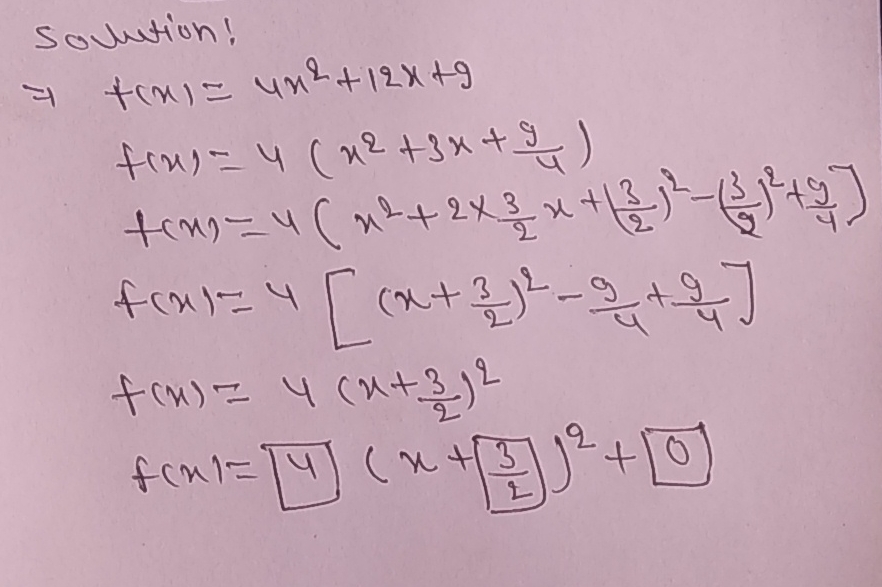 Solution!
⇒ f(x) = 4x² + 12x + 9
f(x) = 4 (x² + 3x + 9/4)
f(x) = 4 ( x² + 2 × 3/2 x + (3/2)² - (3/2)² + 9/4 ]
f(x) = 4 [ (x + 3/2)² - 9/4 + 9/4 ]
f(x) = 4 (x + 3/2)²
f(x) = 4 (x + 3/2)² + 0